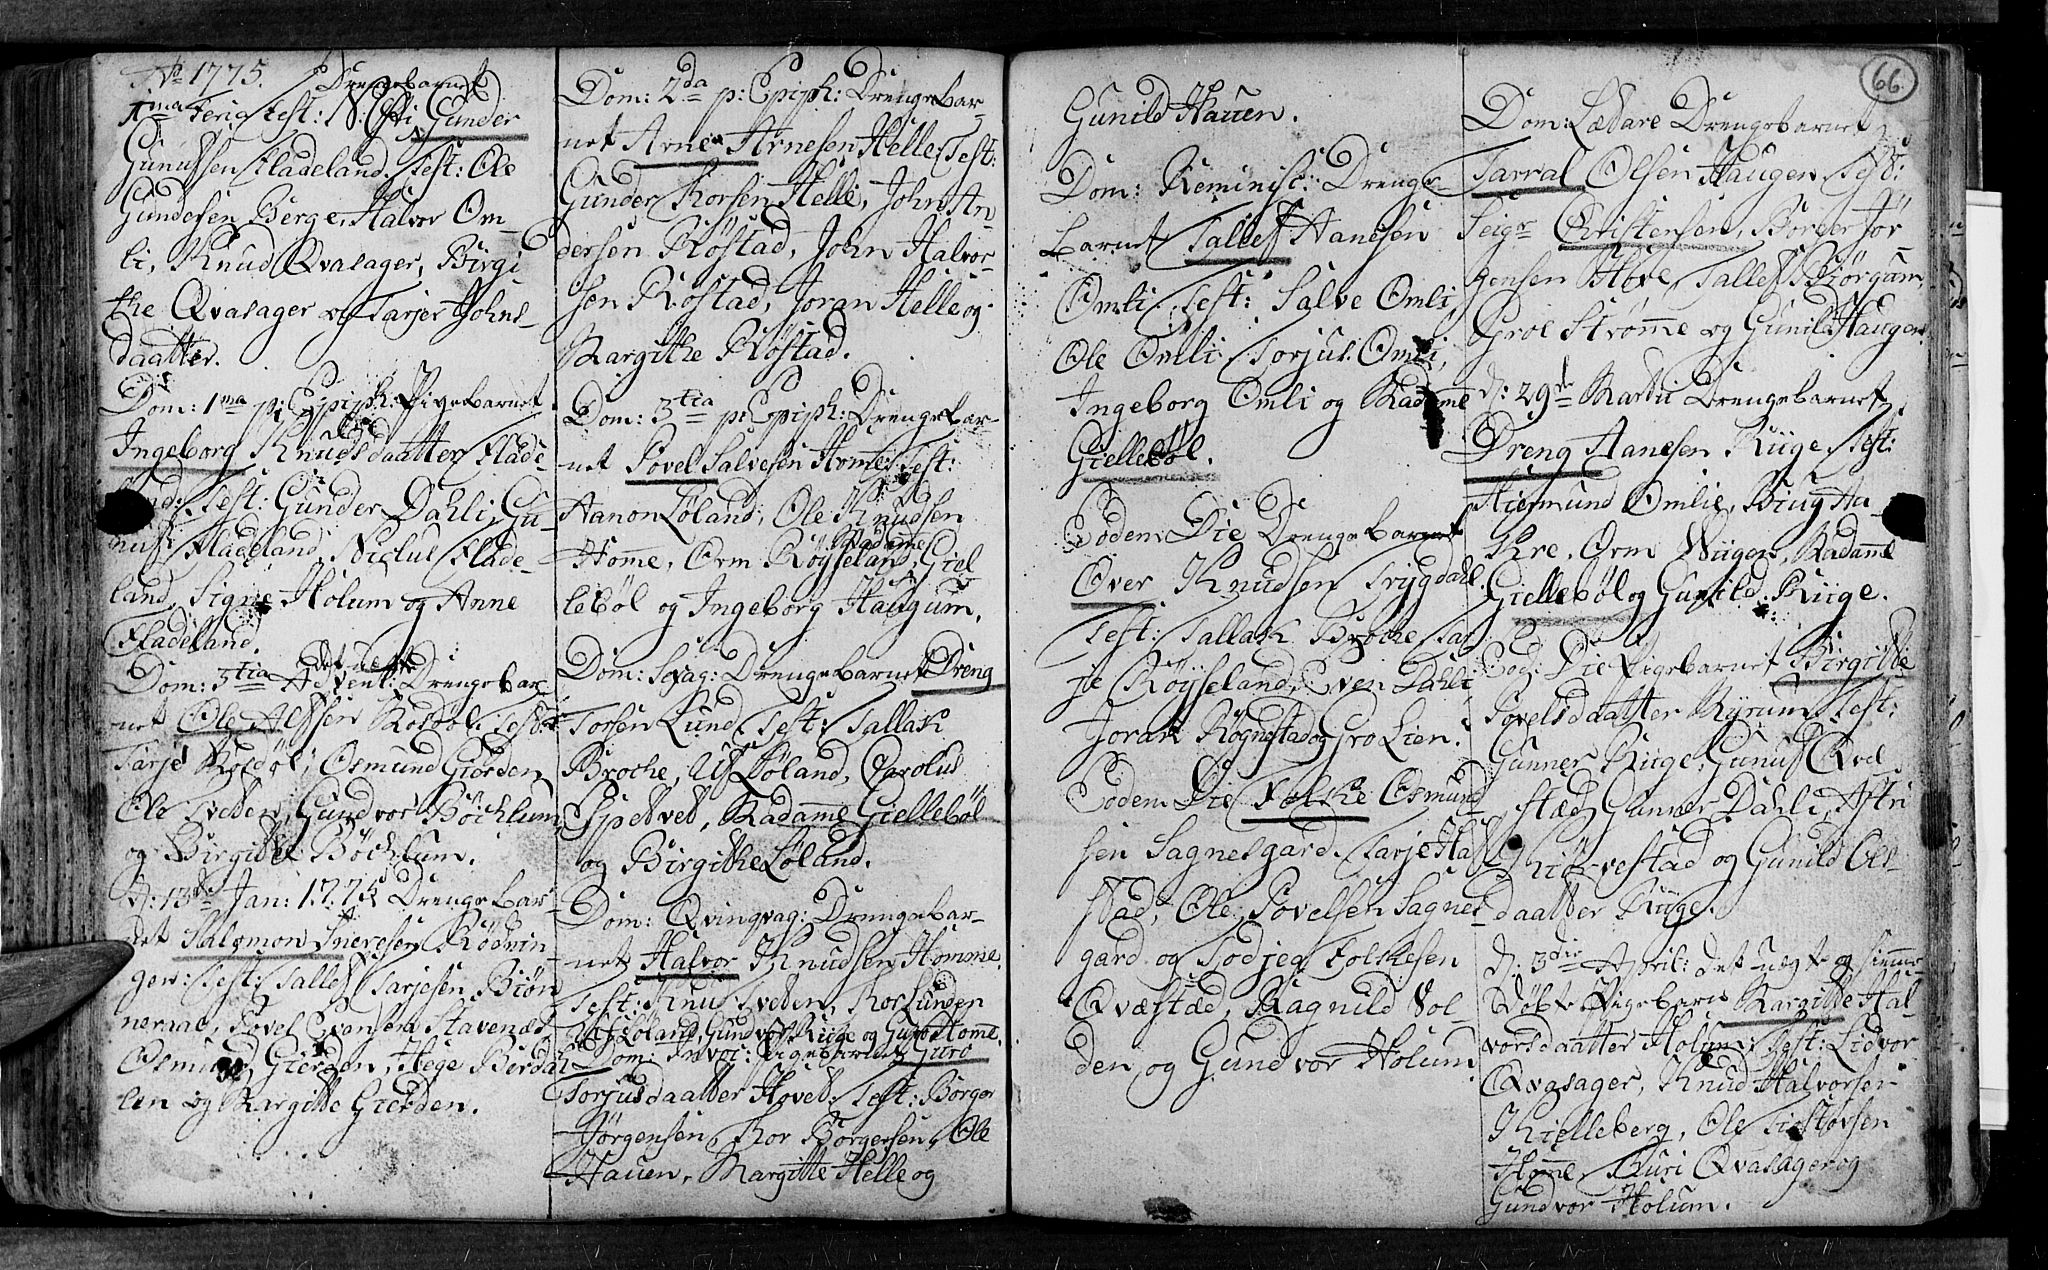 Ao 1775. Drengebarnet
1ma Feria fest: N: Gunder
Gunufsen Fladeland. Test: Ole
Gundersen Berge, Halvor Om-
li, Knud Qvasager, Birgi
the Qvasager og Tarjer Johns-
daatter.
Dom: 1ma p: Epiph: Pigebarnet
Ingeborg Knudsdaatter Flade-
land: Test: Gunder Dahli, Gu-
nuf Fladeland, Niclul Flade-
land, Signe Holum og Anne
Fladeland.
Dom: 3tia Advent: Drengebar-
net Ole Alfsen Rosdøl: Test:
Tarje Rosdøl, Osmund Gierden
Ole Sveden, Gundvor Bôchlum,
og Birgitte Bôchlum.
d: 13de Jan: 1775 Drengebar-
net Salomon Sneresen Rôdnin
gen: Test: Tallef Tarjesen Biôn
neraae, Povel Evensen Stavenæs
Osmund Gierden, Hege Berdal
len og Margitte Gierden.
Dom: 2da p: Epiph: Drengebar-
net Arne Arnesen Helle: Test:
Gunder Korsen Helle, John An
dersen Rôstad, John Halvor-
sen Rôstad, Joran Helle og
Margithe Rôstad.
Dom: 3tia p: Epiph: Drengebar-
net Povel Salvesen Home: Test:
Aanon Lôland, Ole Knudsen
Home, Orm Rôyseland, Madame Giel
lebôl og Ingeborg Haugum.
Dom: Sexag: Drengebarnet Dreng
Torsen Lund Test: Tallak
Broche, Uf Lôland, Carolus
Espetvet, Madame Giellebôl
og Birgithe Lôland.
Dom: Qvinqvag: Drengebar-
net Halvor Knudsen Homme
Test: Knud Sveden,
Uf Lôland, Gundvor Riige og Guro Home.
Dom: Invoc: Pigebarnet Guro
Torjusdaatter Hovet: Test: Borger
Jôrgensen, Kor Borgersen, Ole
Hauen, Margitte Helle og
66.
Gunild Hauen.
Dom: Reminisc: Drenge-
barnet Tallef Hansen
Omli: Test: Salve Omli,
Ole Omli, Torjus Omli,
Ingeborg Omli og Madame
Giellebôl.
Eodem Die Drengebarnet
Over Knudsen Trygdahl.
Test: Tallak Broche, Tar
je Rôyseland, Even Dahli
Joran Rôgnestad og Gro Lien.
Eodem Die Folke Osmund
sen Sagnesgard. Tarje Haf
stad, Ole Povelsen Sagnes
gard og Todjer Folkesen
Qvæstæd, Ragnild Vol-
den og Gundvor Holum
Dom: Lædare Drengebarnet
Tarral Olsen Haugen Test:
Seigr Christensen, Borger Jôr-
gensen Hove, Tallef Biôrgum,
Groe Strôme og Gunild Haugen.
d: 29de Martii Drengebarnet
Dreng Aanesen Riige Test:
Aasmund Omlie, Biug Aa-
kre, Orm Wiigen, Madame
Giellebôl og Gunild Riige.
Eod: Die Pigebarnet Birgitte
Povelsdaatter Rysum Test:
Gunner Riige, Gunuf Qve-
stæd, Gunner Dahli, Astri
Kiôrvestad og Gunild Ols-
daatter Riige.
d: 3die April: det uegte og hieme-
dôbte Pigebarn Margitte Hal
vorsdaatter Holum. Test: Lidvor
Qvasager, Knud Halvorsen
Kielleberg, Ole Tiostolvsen
Home, Guri Qvasager og
Gundvor Holum.